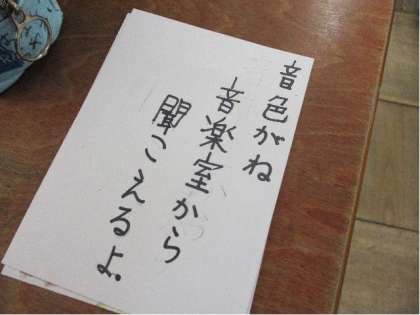 音色がね
音楽室から
聞こえるよ